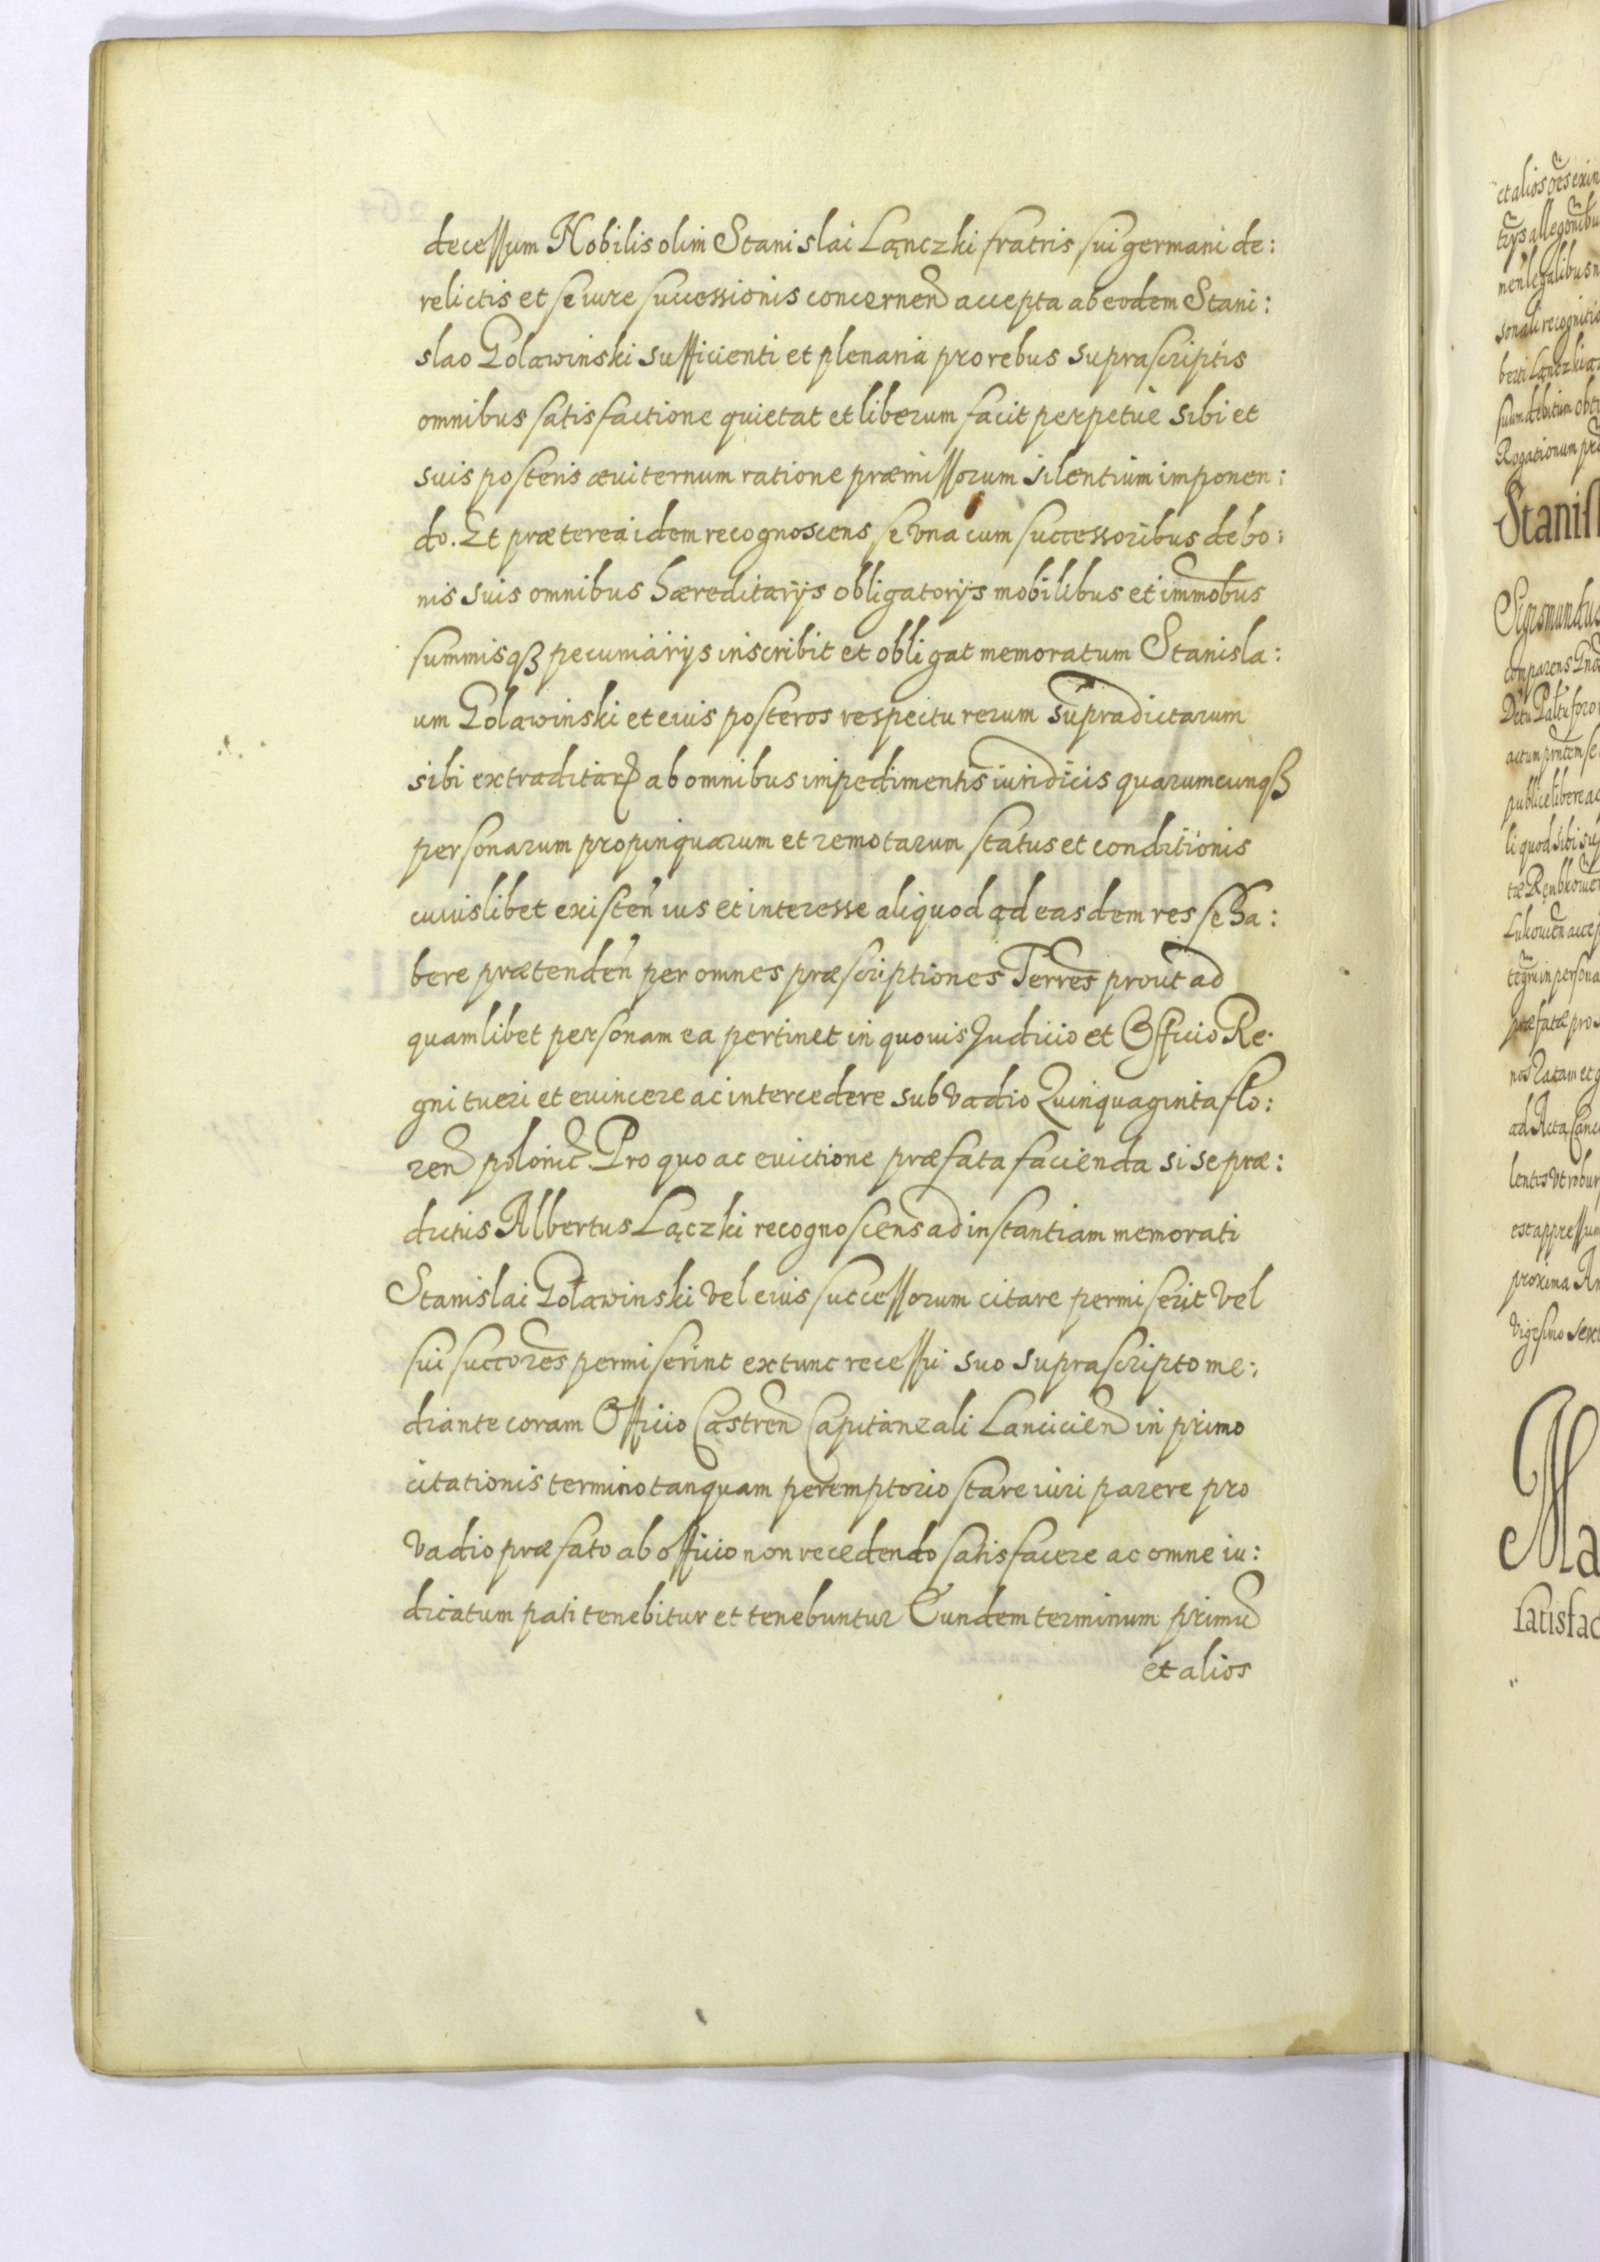 decessum Nobilis olim Stanislai Ląnczki fratris sui germani de:
relictis et se iure successionis concernen accepta ab eodem Stani:
slao Golawinski sufficienti et plenaria pro rebus suprascriptis
omnibus satisfactione quietat et liberum facit perpetue sibi et
suis posteris æviternum ratione præmissorum silentium imponen:
do. Et præterea idem recognoscens se vna cum successoribus de bo:
nis suis omnibus hæreditarijs obligatorijs mobilibus et immobus
summisqȝ pecuniarijs inscribit et obligat memoratum Stanisla:
um Golawinski et eius posteros respectu rerum supradictarum
sibi extraditarꝝ ab omnibus impedimentis iuridicis quarumcunqȝ
personarum propinquarum et remotarum status et conditionis
cuiuslibet existen ius et interesse aliquod ad easdem res se ha:
bere prætenden per omnes præscriptiones Terres prout ad
quamlibet personam ea pertinet in quouis Judicio et Officio Re:
gni tueri et euincere ac intercedere sub vadio Quinquaginta flo:
ren polonic. Pro quo ac euictione præfata facienda si se præ:
dictus Albertus Lączki recognoscens ad instantiam memorati
Stanislai Goławinski vel eius successorum citare permiserit vel
sui succores permiserint extunc recessui suo suprascripto me:
diante coram Officio Castren Capitaneali Lancicien in primo
citationis termino tanquam peremptorio stare iuri parere pro
vadio præfato ab officio non recedendo satisfacere ac omne iu:
dicatum pati tenebitur et tenebuntur Eundem terminum primū
et alios